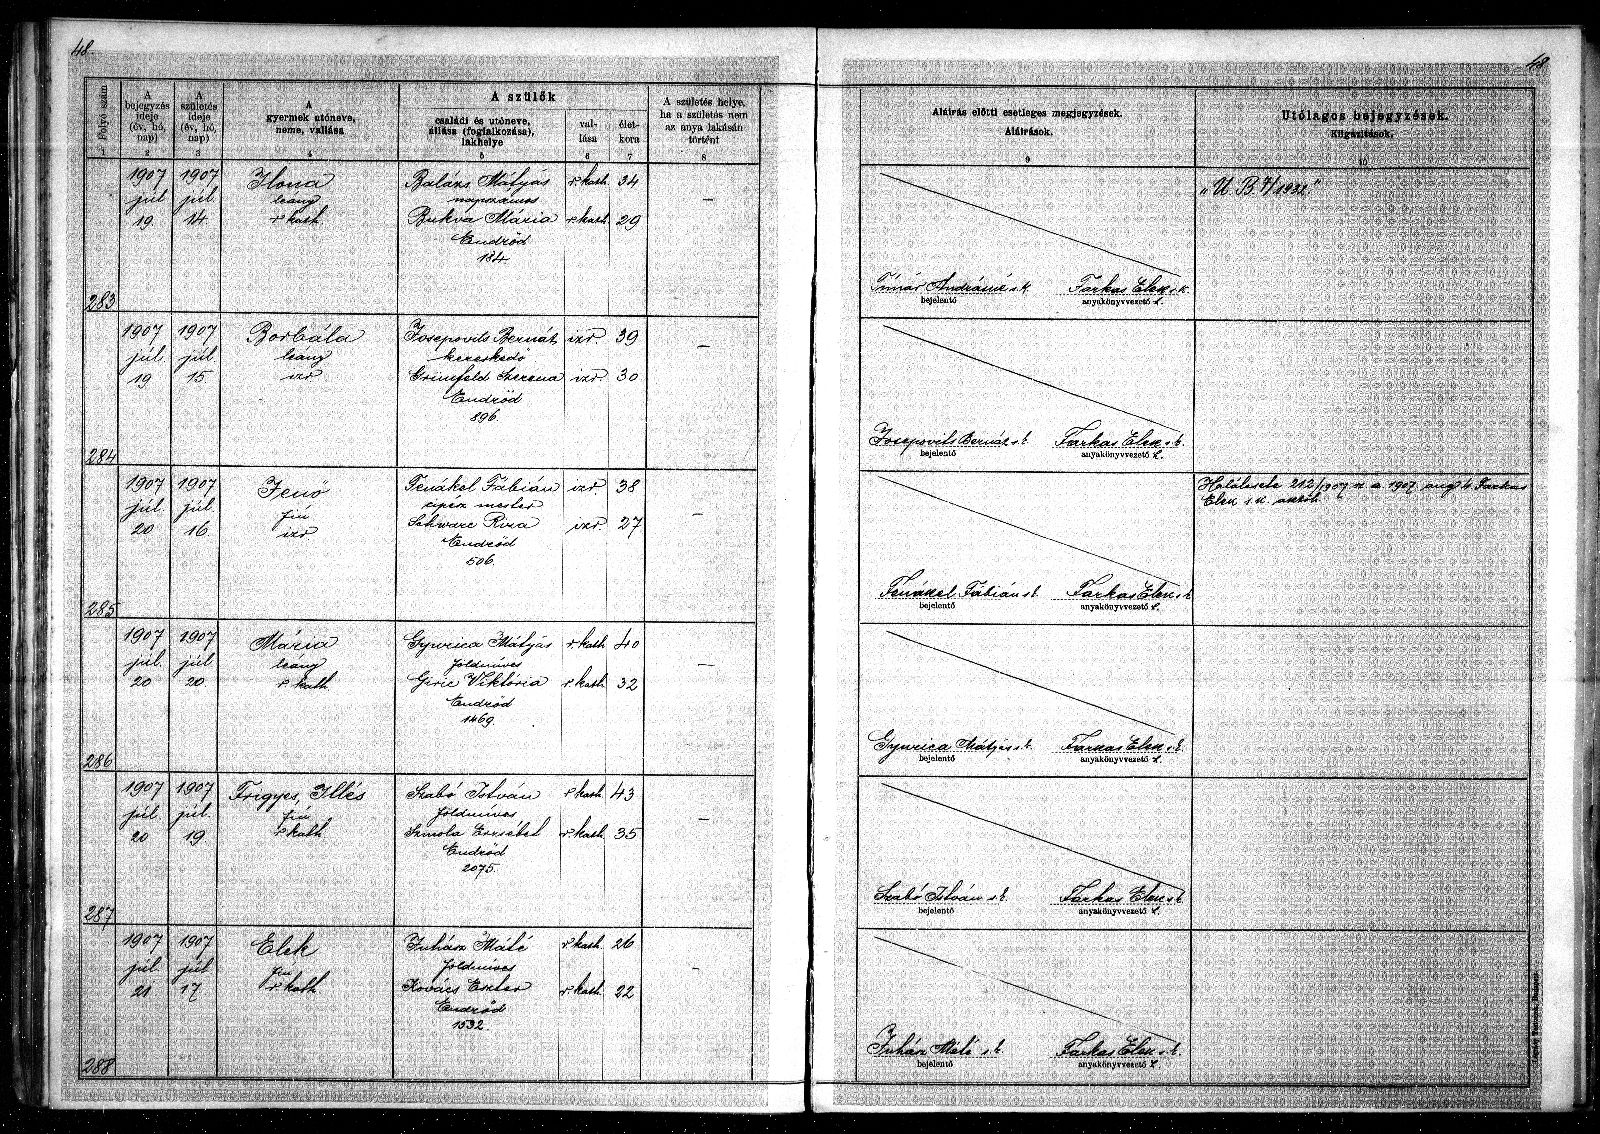 48
48
Folyó szám
A bejegyzés ideje (év, hó, nap)
A születés ideje (év, hó, nap)
A gyermek utóneve, neme, vallása
A szülők
családi és utóneve, állása (foglalkozása), lakhelye
vallása
életkora
A születés helye, ha a születés nem az anya lakásán történt
Aláírás előtti esetleges megjegyzések.
Aláírások.
Utólagos bejegyzések.
Kiigazítások.
1 2 3 4 5 6 7 8 9 10
283
1907 1907 Ilona Balázs Mátyás r. kath. 34
júl. júl. leány napszámos —
19. 14. r. kath. Bukva Mária r. kath. 29
Endrőd
184.
Tímár Andrásné s. k. Farkas Elek s. k.
bejelentő anyakönyvvezető h.
„U. B. 7/1921"
284
1907 1907 Borbála Josepovits Bernát izr. 39
júl. júl. leány kereskedő —
19 15 izr. Grünfeld Szerena izr. 30
Endrőd
896.
Josepovits Bernát s. k. Farkas Elek s. k.
bejelentő anyakönyvvezető h.
285
1907 1907 Jenő Fenákel Fábián izr. 38
júl. júl. fiú cipész mester —
20 16 izr. Schwarc Róza izr. 27
Endrőd
506.
Fenákel Fábián s. k. Farkas Elek s. k.
bejelentő anyakönyvvezető h.
Halálesete 212/907 n. a. 1907. aug. 4. Farkas
Elek s. k.
286
1907 1907 Mária Gyurica Mátyás r. kath. 40
júl. júl. leány földmíves —
20 20. r. kath. Giric Viktória r. kath. 32
Endrőd
1469
Gyurica Mátyás s. k. Farkas Elek s. k.
bejelentő anyakönyvvezető h.
287
1907 1907 Frigyes, Illés Szabó István r. kath. 43
júl. júl. fiú földmíves —
20 19 r. kath. Szmola Erzsébet r. kath. 35
Endrőd
2075.
Szabó István s. k. Farkas Elek s. k.
bejelentő anyakönyvvezető h.
288
1907 1907 Elek Juhász Máté r. kath. 26
júl. júl. fiú földmíves —
21 17. r. kath. Kovács Eszter r. kath. 22
Endrőd
1532.
Juhász Máté s. k. Farkas Elek s. k.
bejelentő anyakönyvvezető h.